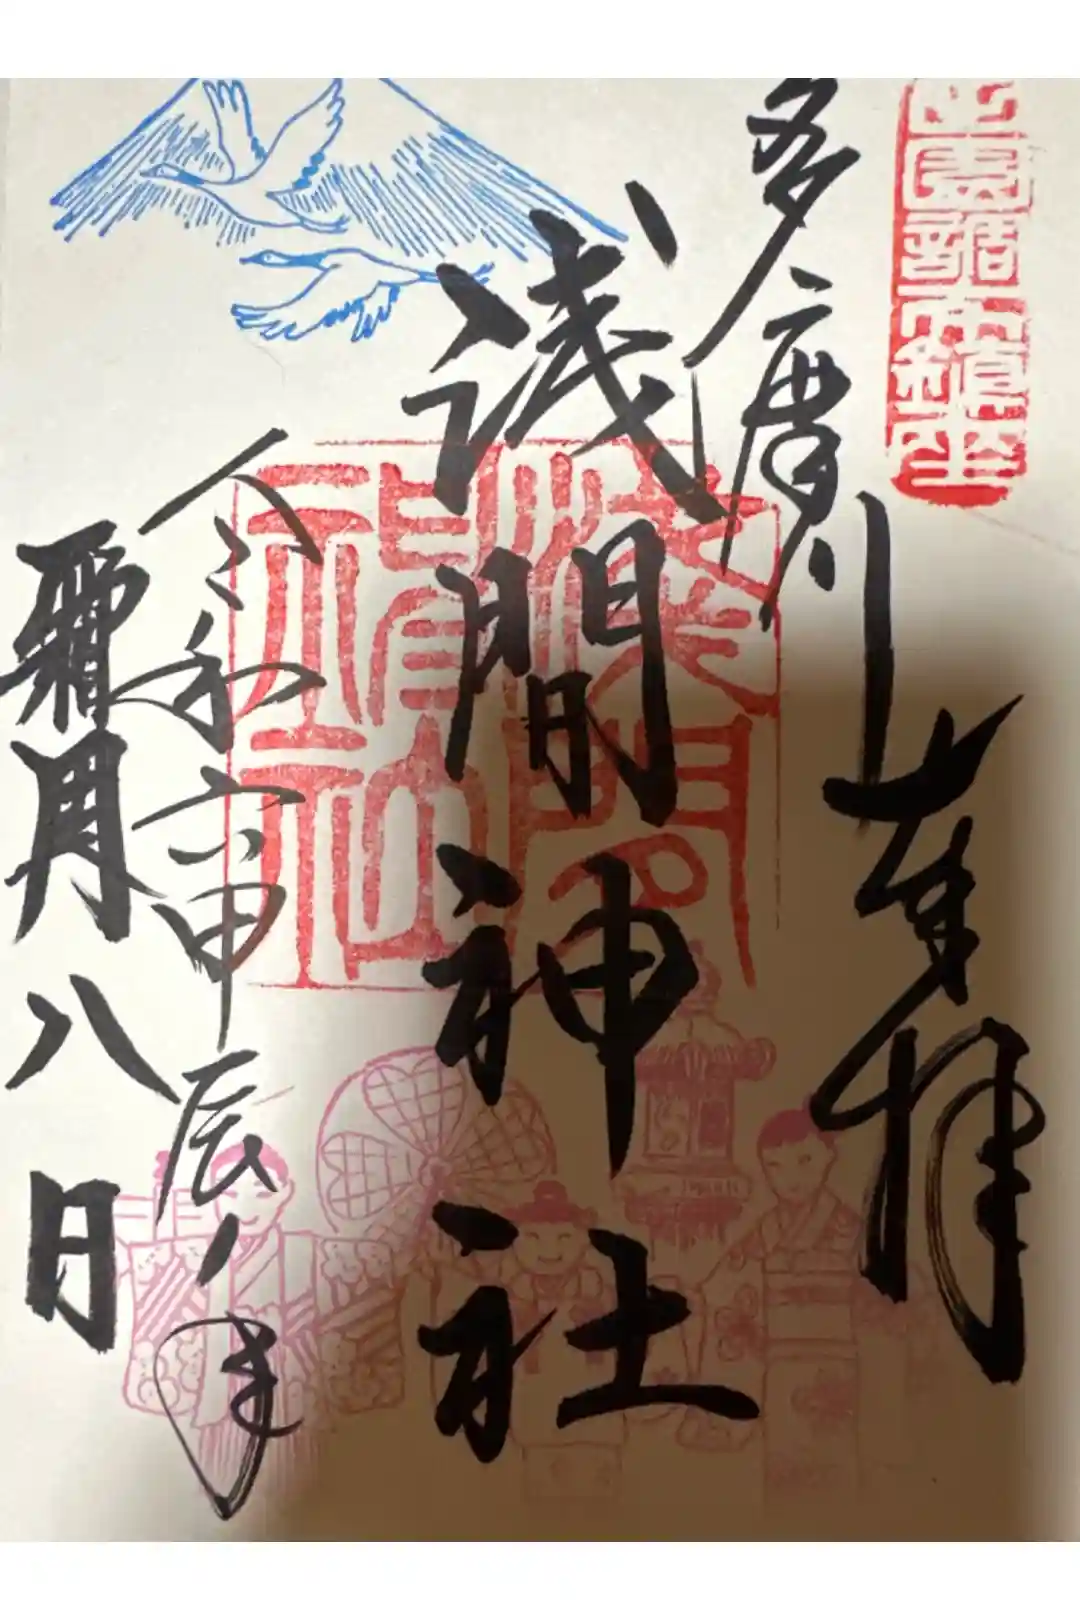 多摩川
奉拝
浅間神社
令和六甲辰ノ年
霜月八日
浅間神社